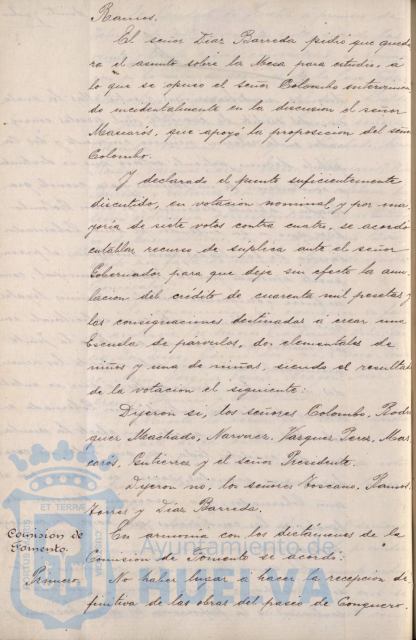 Ramos.
El señor Díaz Barreda pidió que queda
ra el asunto sobre la Mesa para estudio, á
lo que se opuso el señor Colombo intervinien
do incidentalmente en la discusion el señor
Mascarós, que apoyó la proposicion del señor
Colombo.
Y declarado el punto suficientemente
discutido, en votacion nominal, y por ma
yoría de siete votos contra cuatro, se acordó
entablar recurso de súplica ante el señor
Gobernador para que deje sin efecto la anu
lacion del crédito de cuarenta mil pesetas y
las consignaciones destinadas á crear una
Escuela de párvulos, dos elementales de
niños y una de niñas, siendo el resultado
de la votacion el siguiente:
Dijeron si, los señores Colombo, Rodri
guez Machado, Narvaez, Vazquez Perez, Mas
carós, Gutierrez y el señor Presidente.
Dijeron no, los señores Toscano, Ramos,
Torres y Díaz Barreda.
Comision de
Fomento.
En armonía con los dictámenes de la
Comision de Fomento se acordó:
Primero.
No haber lugar a hacer la recepcion de
finitiva de las obras del paseo de Conquero.
ET TERRA
Ayuntamiento de
HUELVA